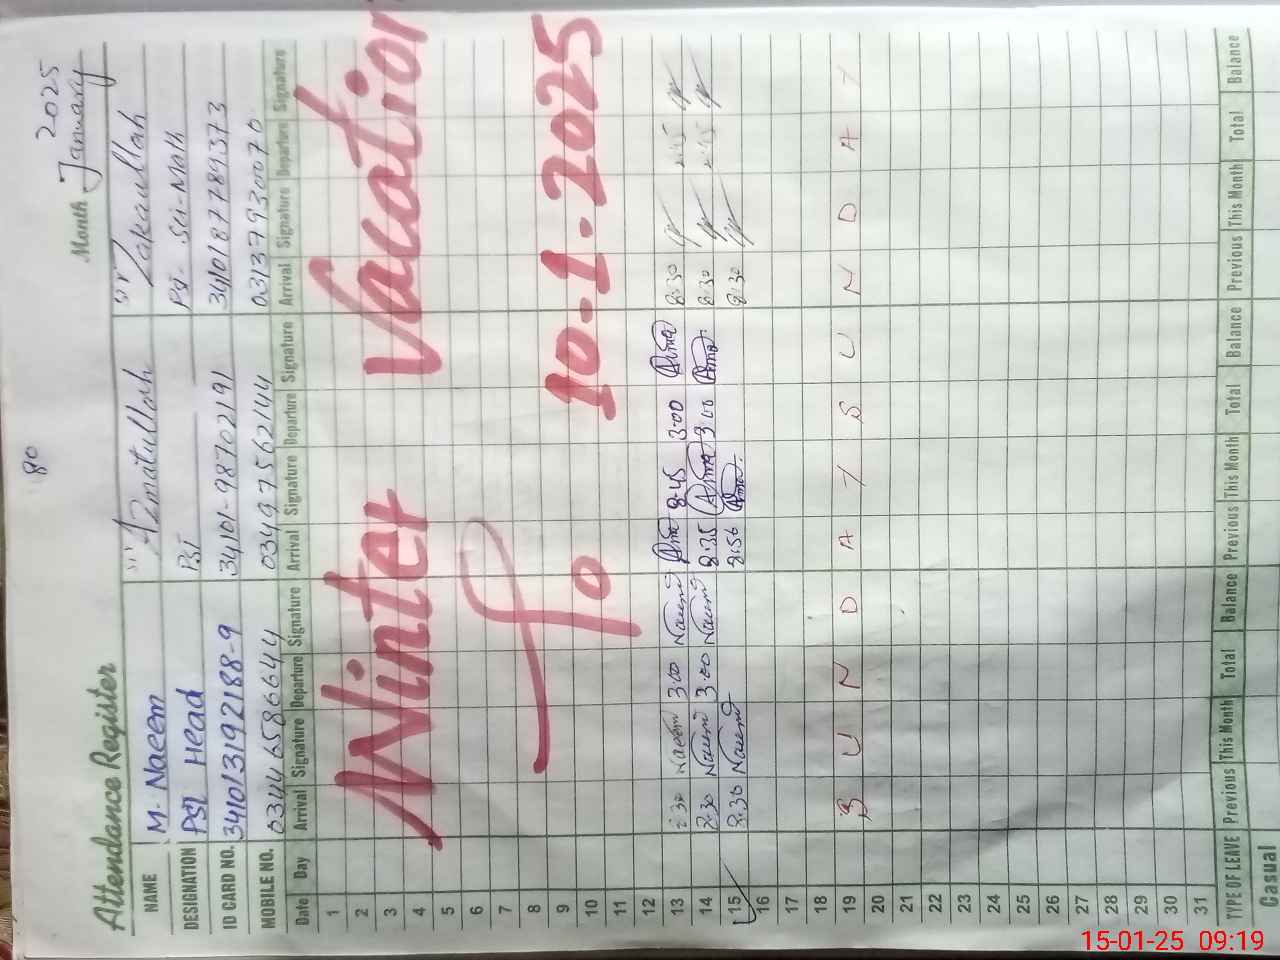 80
Attendance Register Month January 2025
NAME M. Naeem Sir Azmatullah Sir Zakaullah
DESIGNATION PST Head PST PST Sci-Math
ID CARD NO. 3410131921188-9 34101-98702191 3410187789373
MOBILE NO. 03446586644 034975562144 03137930070
Date Day Arrival Signature Departure Signature Arrival Signature Departure Signature Arrival Signature Departure Signature
1
2
3
4
Winter Vacation
5
6
7
8
9
10
To 10.1.2025
11
12
13 8:30 Naeem 3:00 Naeem 8:45 3:00 8:30
14 8:30 Naeem 3:00 Naeem 8:35 3:00 8:30
15 8:30 Naeem 8:56 8:30
16
17
18
19 S U N D A Y S U N D A Y
20
21
22
23
24
25
26
27
28
29
30
31
TYPE OF LEAVE Previous This Month Total Balance Previous This Month Total Balance Previous This Month Total Balance
Casual
15-01-25 09:19